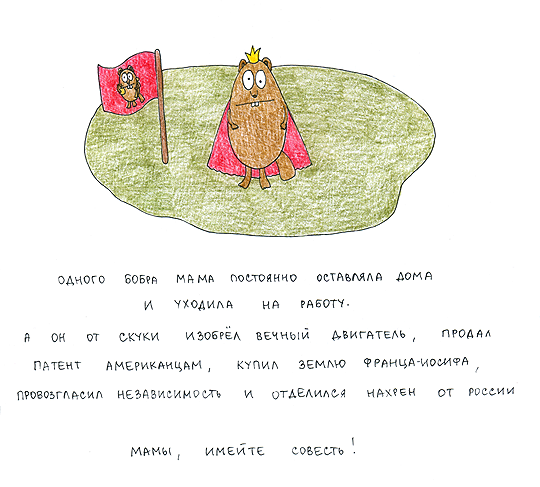 ОДНОГО БОБРА МАМА ПОСТОЯННО ОСТАВЛЯЛА ДОМА
И УХОДИЛА НА РАБОТУ.
А ОН ОТ СКУКИ ИЗОБРЁЛ ВЕЧНЫЙ ДВИГАТЕЛЬ, ПРОДАЛ
ПАТЕНТ АМЕРИКАНЦАМ, КУПИЛ ЗЕМЛЮ ФРАНЦА-ИОСИФА,
ПРОВОЗГЛАСИЛ НЕЗАВИСИМОСТЬ И ОТДЕЛИЛСЯ НАХРЕН ОТ РОССИИ
МАМЫ, ИМЕЙТЕ СОВЕСТЬ!